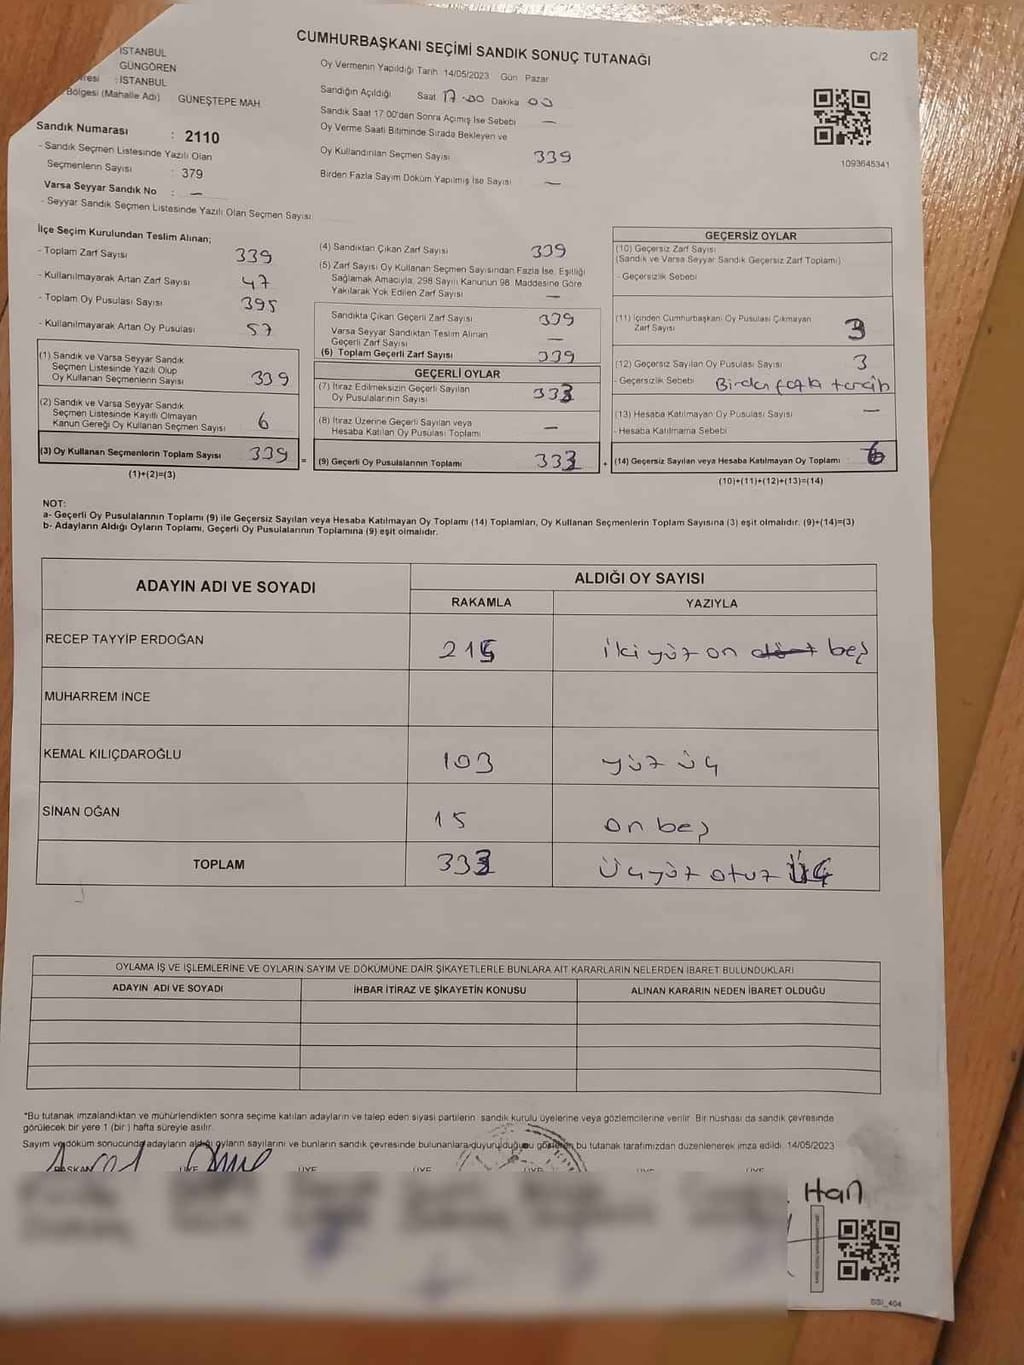 CUMHURBAŞKANI SEÇİMİ SANDIK SONUÇ TUTANAĞI
C/2
İSTANBUL
GÜNGÖREN
: İSTANBUL
Bölgesi (Mahalle Adı) GÜNEŞTEPE MAH.
Oy Vermenin Yapıldığı Tarih 14/05/2023 Gün Pazar
Sandığın Açıldığı Saat 17.00 Dakika 00
Sandık Saat 17:00'den Sonra Açmış İse Sebebi —
Oy Verme Saati Bitiminde Sırada Bekleyen ve
Oy Kullandırılan Seçmen Sayısı 339
Birden Fazla Sayım Döküm Yapılmış İse Sayısı —
1093645341
Sandık Numarası : 2110
- Sandık Seçmen Listesinde Yazılı Olan
Seçmenlerin Sayısı : 379
Varsa Seyyar Sandık No : —
- Seyyar Sandık Seçmen Listesinde Yazılı Olan Seçmen Sayısı:
İlçe Seçim Kurulundan Teslim Alınan;
- Toplam Zarf Sayısı 339
- Kullanılmayarak Artan Zarf Sayısı 47
- Toplam Oy Pusulası Sayısı 395
- Kullanılmayarak Artan Oy Pusulası 57
(1) Sandık ve Varsa Seyyar Sandık
Seçmen Listesinde Yazılı Olup
Oy Kullanan Seçmenlerin Sayısı 339
(2) Sandık ve Varsa Seyyar Sandık
Seçmen Listesinde Kayıtlı Olmayan
Kanun Gereği Oy Kullanan Seçmen Sayısı 6
(3) Oy Kullanan Seçmenlerin Toplam Sayısı 339
(1)+(2)=(3)
(4) Sandıktan Çıkan Zarf Sayısı 339
(5) Zarf Sayısı Oy Kullanan Seçmen Sayısından Fazla İse, Eşitliği
Sağlamak Amacıyla, 298 Sayılı Kanunun 98. Maddesine Göre
Yakılarak Yok Edilen Zarf Sayısı —
Sandıkta Çıkan Geçerli Zarf Sayısı 339
Varsa Seyyar Sandıktan Teslim Alınan
Geçerli Zarf Sayısı —
(6) Toplam Geçerli Zarf Sayısı 339
GEÇERLİ OYLAR
(7) İtiraz Edilmeksizin Geçerli Sayılan
Oy Pusulalarının Sayısı 333
(8) İtiraz Üzerine Geçerli Sayılan veya
Hesaba Katılan Oy Pusulası Toplamı —
= (9) Geçerli Oy Pusulalarının Toplamı 333
GEÇERSİZ OYLAR
(10) Geçersiz Zarf Sayısı
(Sandık ve Varsa Seyyar Sandık Geçersiz Zarf Toplamı)
- Geçersizlik Sebebi
(11) İçinden Cumhurbaşkanı Oy Pusulası Çıkmayan
Zarf Sayısı 3
(12) Geçersiz Sayılan Oy Pusulası Sayısı 3
- Geçersizlik Sebebi Birden fazla tercih
(13) Hesaba Katılmayan Oy Pusulası Sayısı —
- Hesaba Katılmama Sebebi
+ (14) Geçersiz Sayılan veya Hesaba Katılmayan Oy Toplamı 6
(10)+(11)+(12)+(13)=(14)
NOT:
a- Geçerli Oy Pusulalarının Toplamı (9) ile Geçersiz Sayılan veya Hesaba Katılmayan Oy Toplamı (14) Toplamları, Oy Kullanan Seçmenlerin Toplam Sayısına (3) eşit olmalıdır. (9)+(14)=(3)
b- Adayların Aldığı Oyların Toplamı, Geçerli Oy Pusulalarının Toplamına (9) eşit olmalıdır.
ADAYIN ADI VE SOYADI ALDIĞI OY SAYISI
RAKAMLA YAZIYLA
RECEP TAYYİP ERDOĞAN 215 iki yüz on dört beş
MUHARREM İNCE
KEMAL KILIÇDAROĞLU 103 yüz üç
SİNAN OĞAN 15 on beş
TOPLAM 333 üç yüz otuz üç
OYLAMA İŞ VE İŞLEMLERİNE VE OYLARIN SAYIM VE DÖKÜMÜNE DAİR ŞİKAYETLERLE BUNLARA AİT KARARLARIN NELERDEN İBARET BULUNDUKLARI
ADAYIN ADI VE SOYADI İHBAR İTİRAZ VE ŞİKAYETİN KONUSU ALINAN KARARIN NEDEN İBARET OLDUĞU
*Bu tutanak imzalandıktan ve mühürlendikten sonra seçime katılan adayların ve talep eden siyasi partilerin sandık kurulu üyelerine veya gözlemcilerine verilir. Bir nüshası da sandık çevresinde
görülecek bir yere 1 (bir) hafta süreyle asılır.
Sayım ve döküm sonucunda adayların aldığı oyların sayılarını ve bunların sandık çevresinde bulunanlara duyurulduğunu gösteren bu tutanak tarafımızdan düzenlenerek imza edildi. 14/05/2023
BAŞKAN ÜYE ÜYE ÜYE ÜYE ÜYE ÜYE
Han
SSI_404